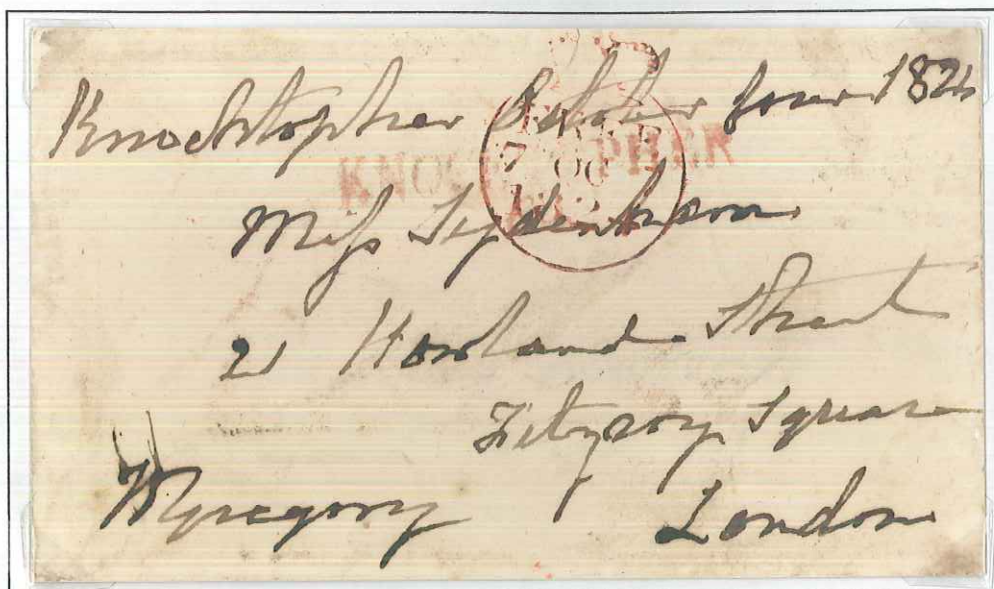 Knocktopher October four 1824
KNOCKTOPHER
FREE
7 OC
182
Miss Sydenham
21 Howland Street
Fitzroy Square
WGregory London